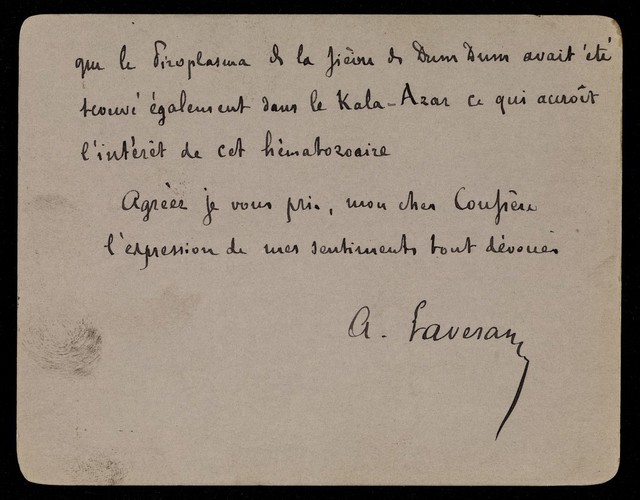 que le Piroplasma de la fièvre de Dum Dum avait été
trouvé également dans le Kala-Azar ce qui accroît
l'intérêt de cet hématozoaire
Agréez je vous prie, mon cher Confrère
l'expression de mes sentiments tout dévoués
A. Laveran